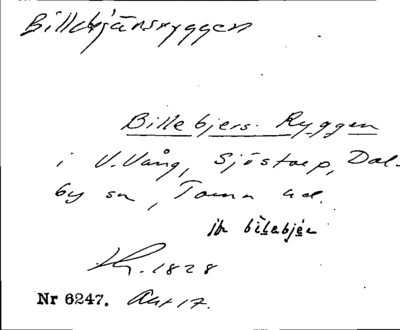 Billebjärsryggen
Billebjers-Ryggen
i V.Vång, Sjöstorp, Dal-
by sn, Torna hd.
jfr bìlabjér
Kr. 1828
Nr 6247. Akt 17.